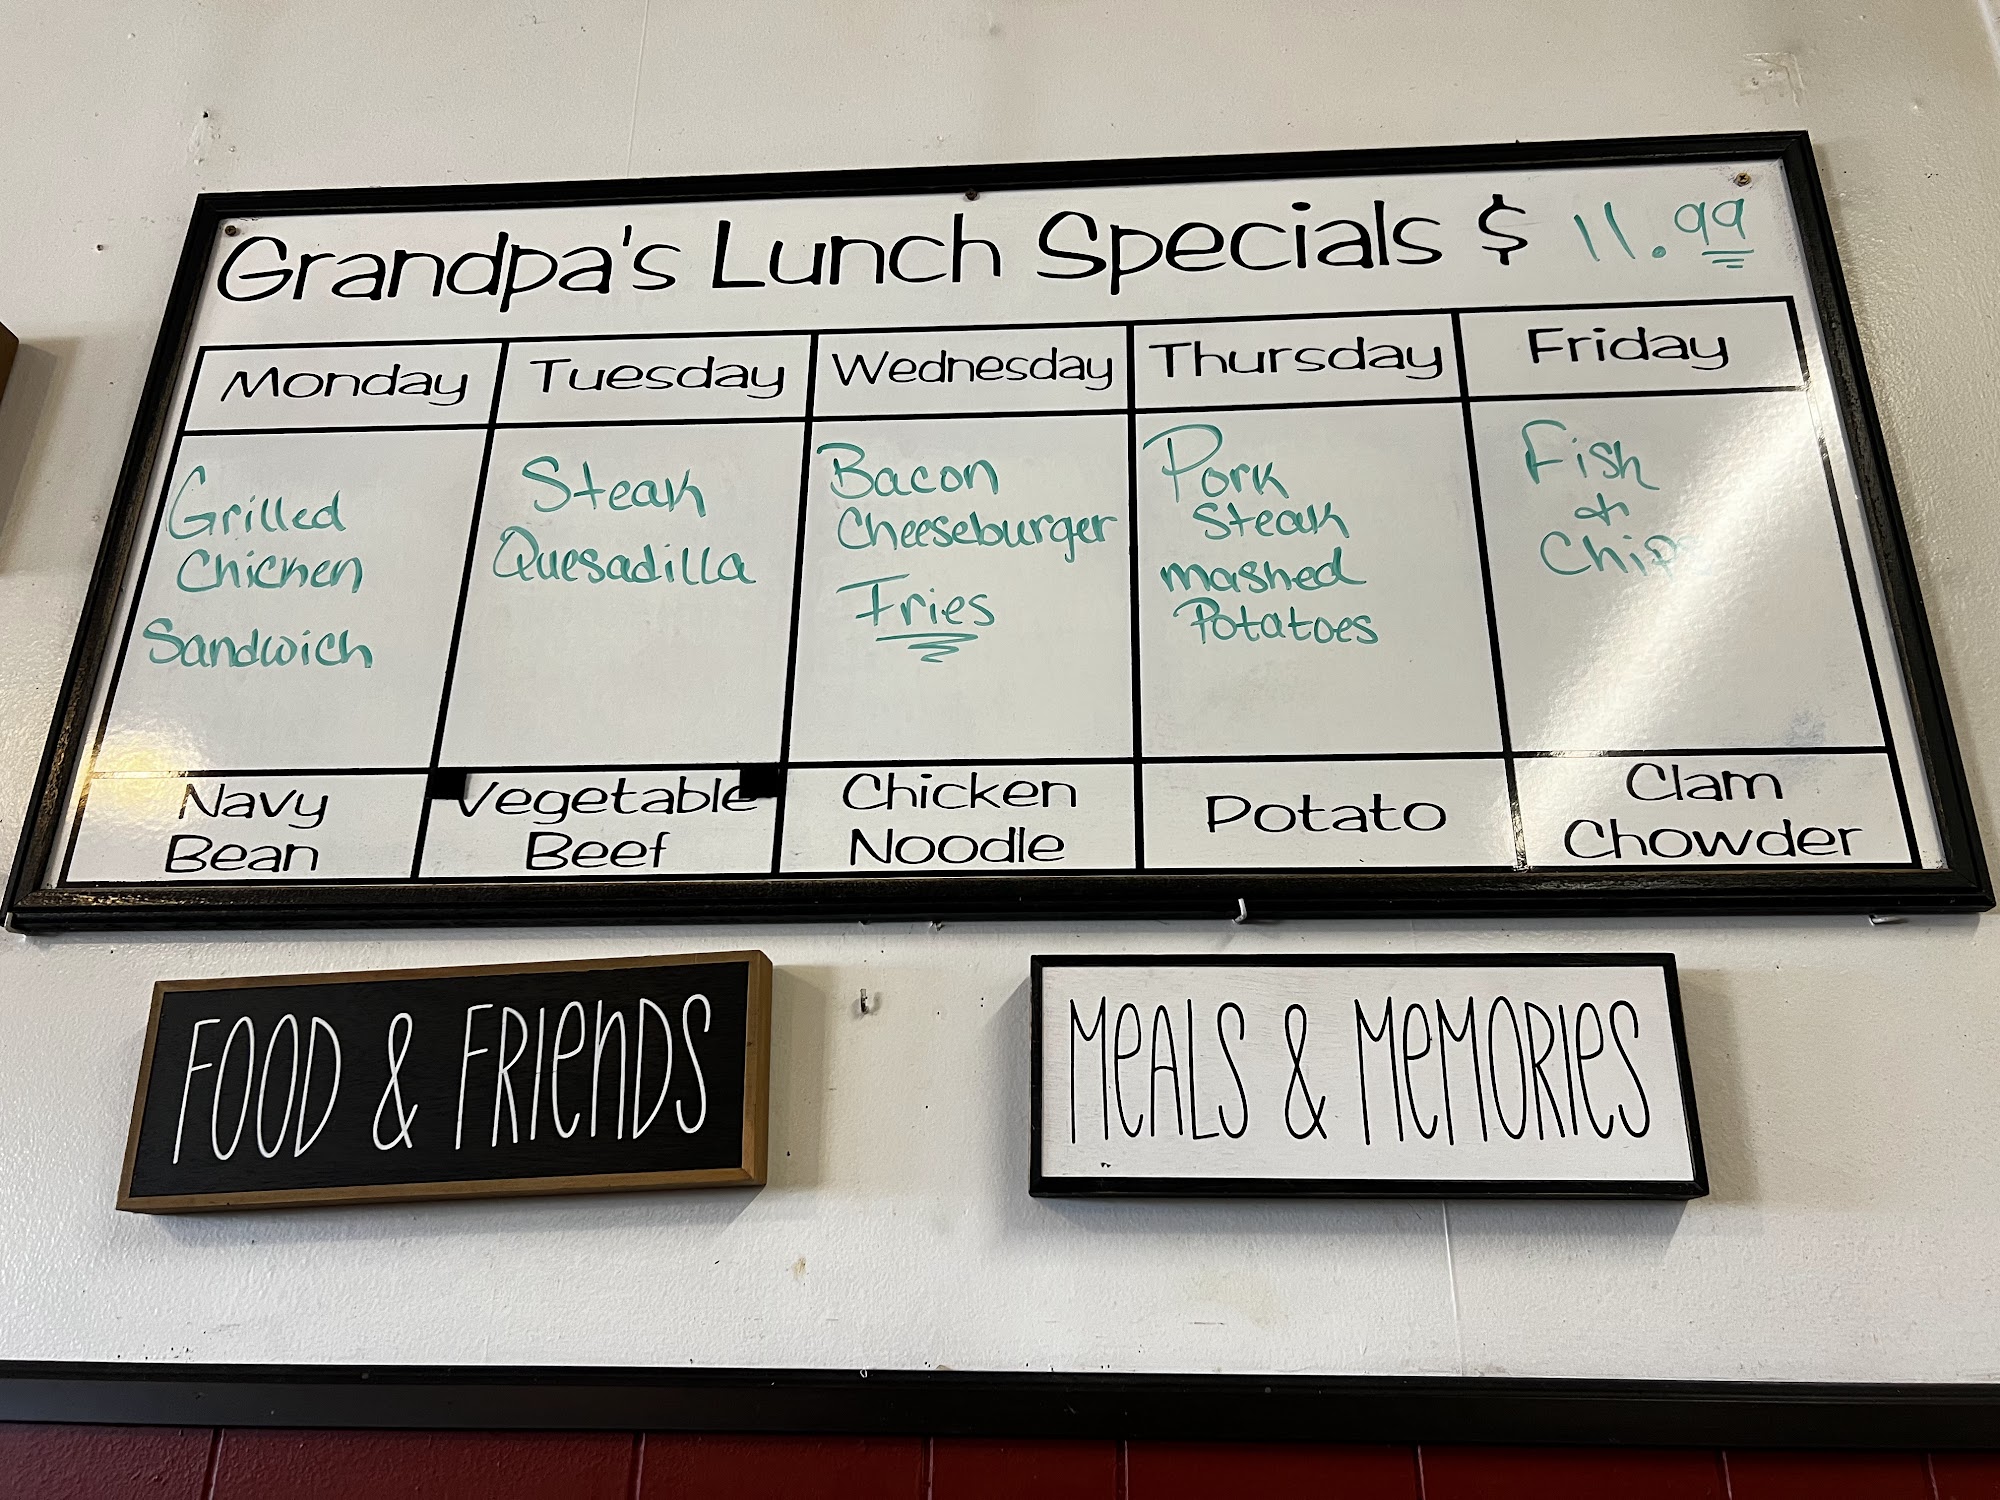 Grandpa's Lunch Specials $ 11.99
Monday
Tuesday
Wednesday
Thursday
Friday
Grilled
Chicken
Sandwich
Steak
Quesadilla
Bacon
Cheeseburger
Fries
Pork
Steak
mashed
Potatoes
Fish
&
Chips
Navy
Bean
Vegetable
Beef
Chicken
Noodle
Potato
Clam
Chowder
FOOD & FRIenDS
MeALS & MeMORIeS